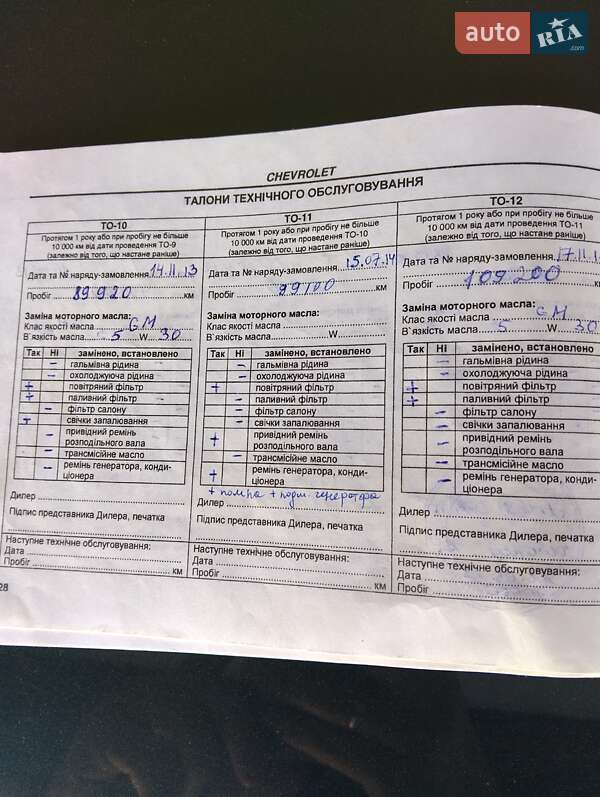 auto RIA.com
CHEVROLET
ТАЛОНИ ТЕХНІЧНОГО ОБСЛУГОВУВАННЯ
ТО-10
Протягом 1 року або при пробігу не більше
10 000 км від дати проведення ТО-9
(залежно від того, що настане раніше)
Дата та № наряду-замовлення 14.11.13
Пробіг 89920 км
Заміна моторного масла:
Клас якості масла GM
В`язкість масла 5 W 30
Так Ні замінено, встановлено
– гальмівна рідина
– охолоджуюча рідина
+ повітряний фільтр
+ паливний фільтр
– фільтр салону
+ свічки запалювання
– привідний ремінь
розподільного вала
– трансмісійне масло
– ремінь генератора, конди-
ціонера
Дилер
Підпис представника Дилера, печатка
Наступне технічне обслуговування:
Дата
Пробіг км
28
ТО-11
Протягом 1 року або при пробігу не більше
10 000 км від дати проведення ТО-10
(залежно від того, що настане раніше)
Дата та № наряду-замовлення 15.07.14
Пробіг 99100 км
Заміна моторного масла:
Клас якості масла
В`язкість масла W
Так Ні замінено, встановлено
– гальмівна рідина
– охолоджуюча рідина
+ повітряний фільтр
– паливний фільтр
– фільтр салону
– свічки запалювання
+ привідний ремінь
розподільного вала
– трансмісійне масло
+ ремінь генератора, конди-
ціонера
+ помпа + подш. генератора
Дилер
Підпис представника Дилера, печатка
Наступне технічне обслуговування:
Дата
Пробіг км
ТО-12
Протягом 1 року або при пробігу не більше
10 000 км від дати проведення ТО-11
(залежно від того, що настане раніше)
Дата та № наряду-замовлення 17.11.1
Пробіг 109200 км
Заміна моторного масла:
Клас якості масла GM
В`язкість масла 5 W 30
Так Ні замінено, встановлено
– гальмівна рідина
– охолоджуюча рідина
+ повітряний фільтр
+ паливний фільтр
– фільтр салону
– свічки запалювання
– привідний ремінь
розподільного вала
– трансмісійне масло
– ремінь генератора, конди-
ціонера
Дилер
Підпис представника Дилера, печатка
Наступне технічне обслуговування:
Дата
Пробіг